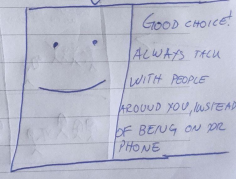 GOOD CHOICE!
ALWAYS TALK
WITH PEOPLE
AROUND YOU, INSTEAD
OF BEING ON
PHONE